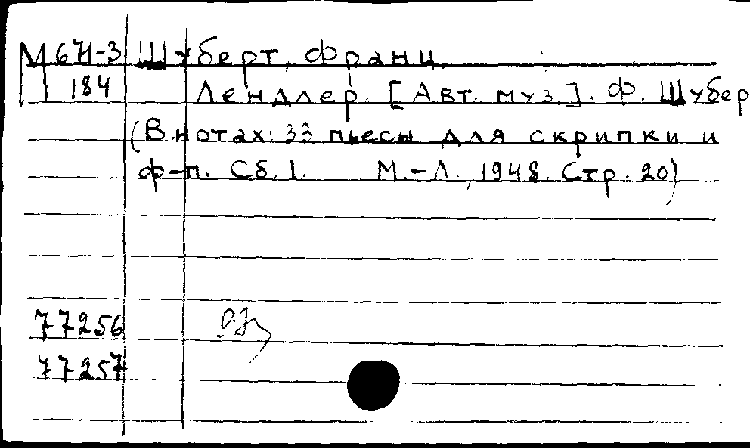 М 671-3 Шуберт, Франц.
184 Лендлер. [Авт. муз.]. Ф. Шубер
(В нотах: 33 пьесы для скрипки и
ф-п. Сб. 1. М.-Л., 1948. Стр. 20)
77256
77257